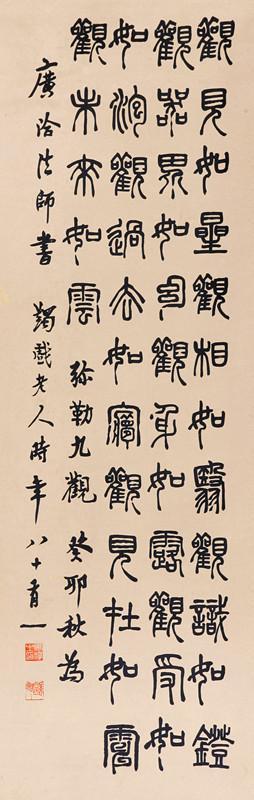 觀見如星觀相如翳觀識如鐙
觀器界如幻觀身如露觀受如
如泡觀過去如夢觀見在如電
觀未來如雲 弥勒九觀 癸卯秋為
廣洽法師書 蠲戲老人時年八十有一